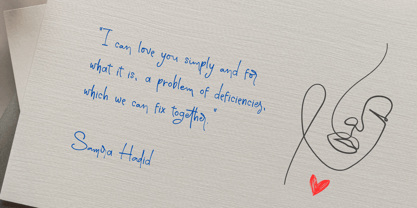 "I can love you simply and for
what it is, a problem of deficiencies,
which we can fix together."
Samra Hadid